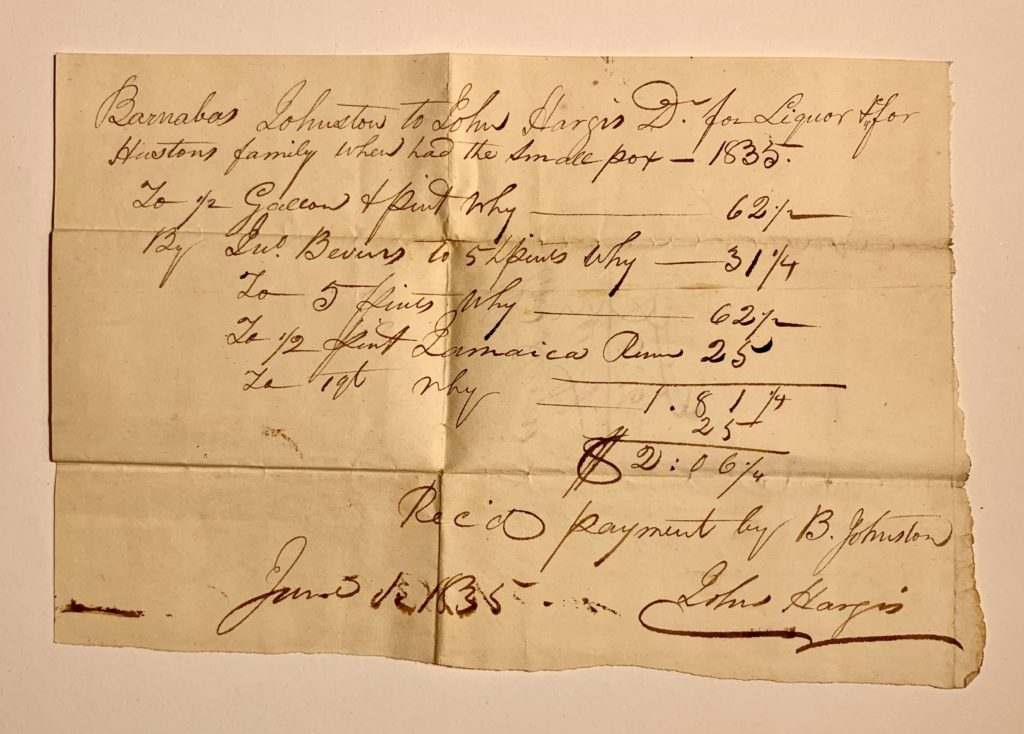 Barnabas Johnston to John Hargis Dr. for Liquor &c for
Hustons family when had the small pox – 1835.
To 1/2 Gallon & pint Why 62 1/2
By Jno. Bevins to 5 1/2 pints Why 31 1/4
To 5 pints Why 62 1/2
To 1/2 pint Jamaica Rum 25
To 1 qt Why 1.81 1/4
25
$ 2:06 1/4
Rec'd payment by B. Johnston
June 1835.
John Hargis